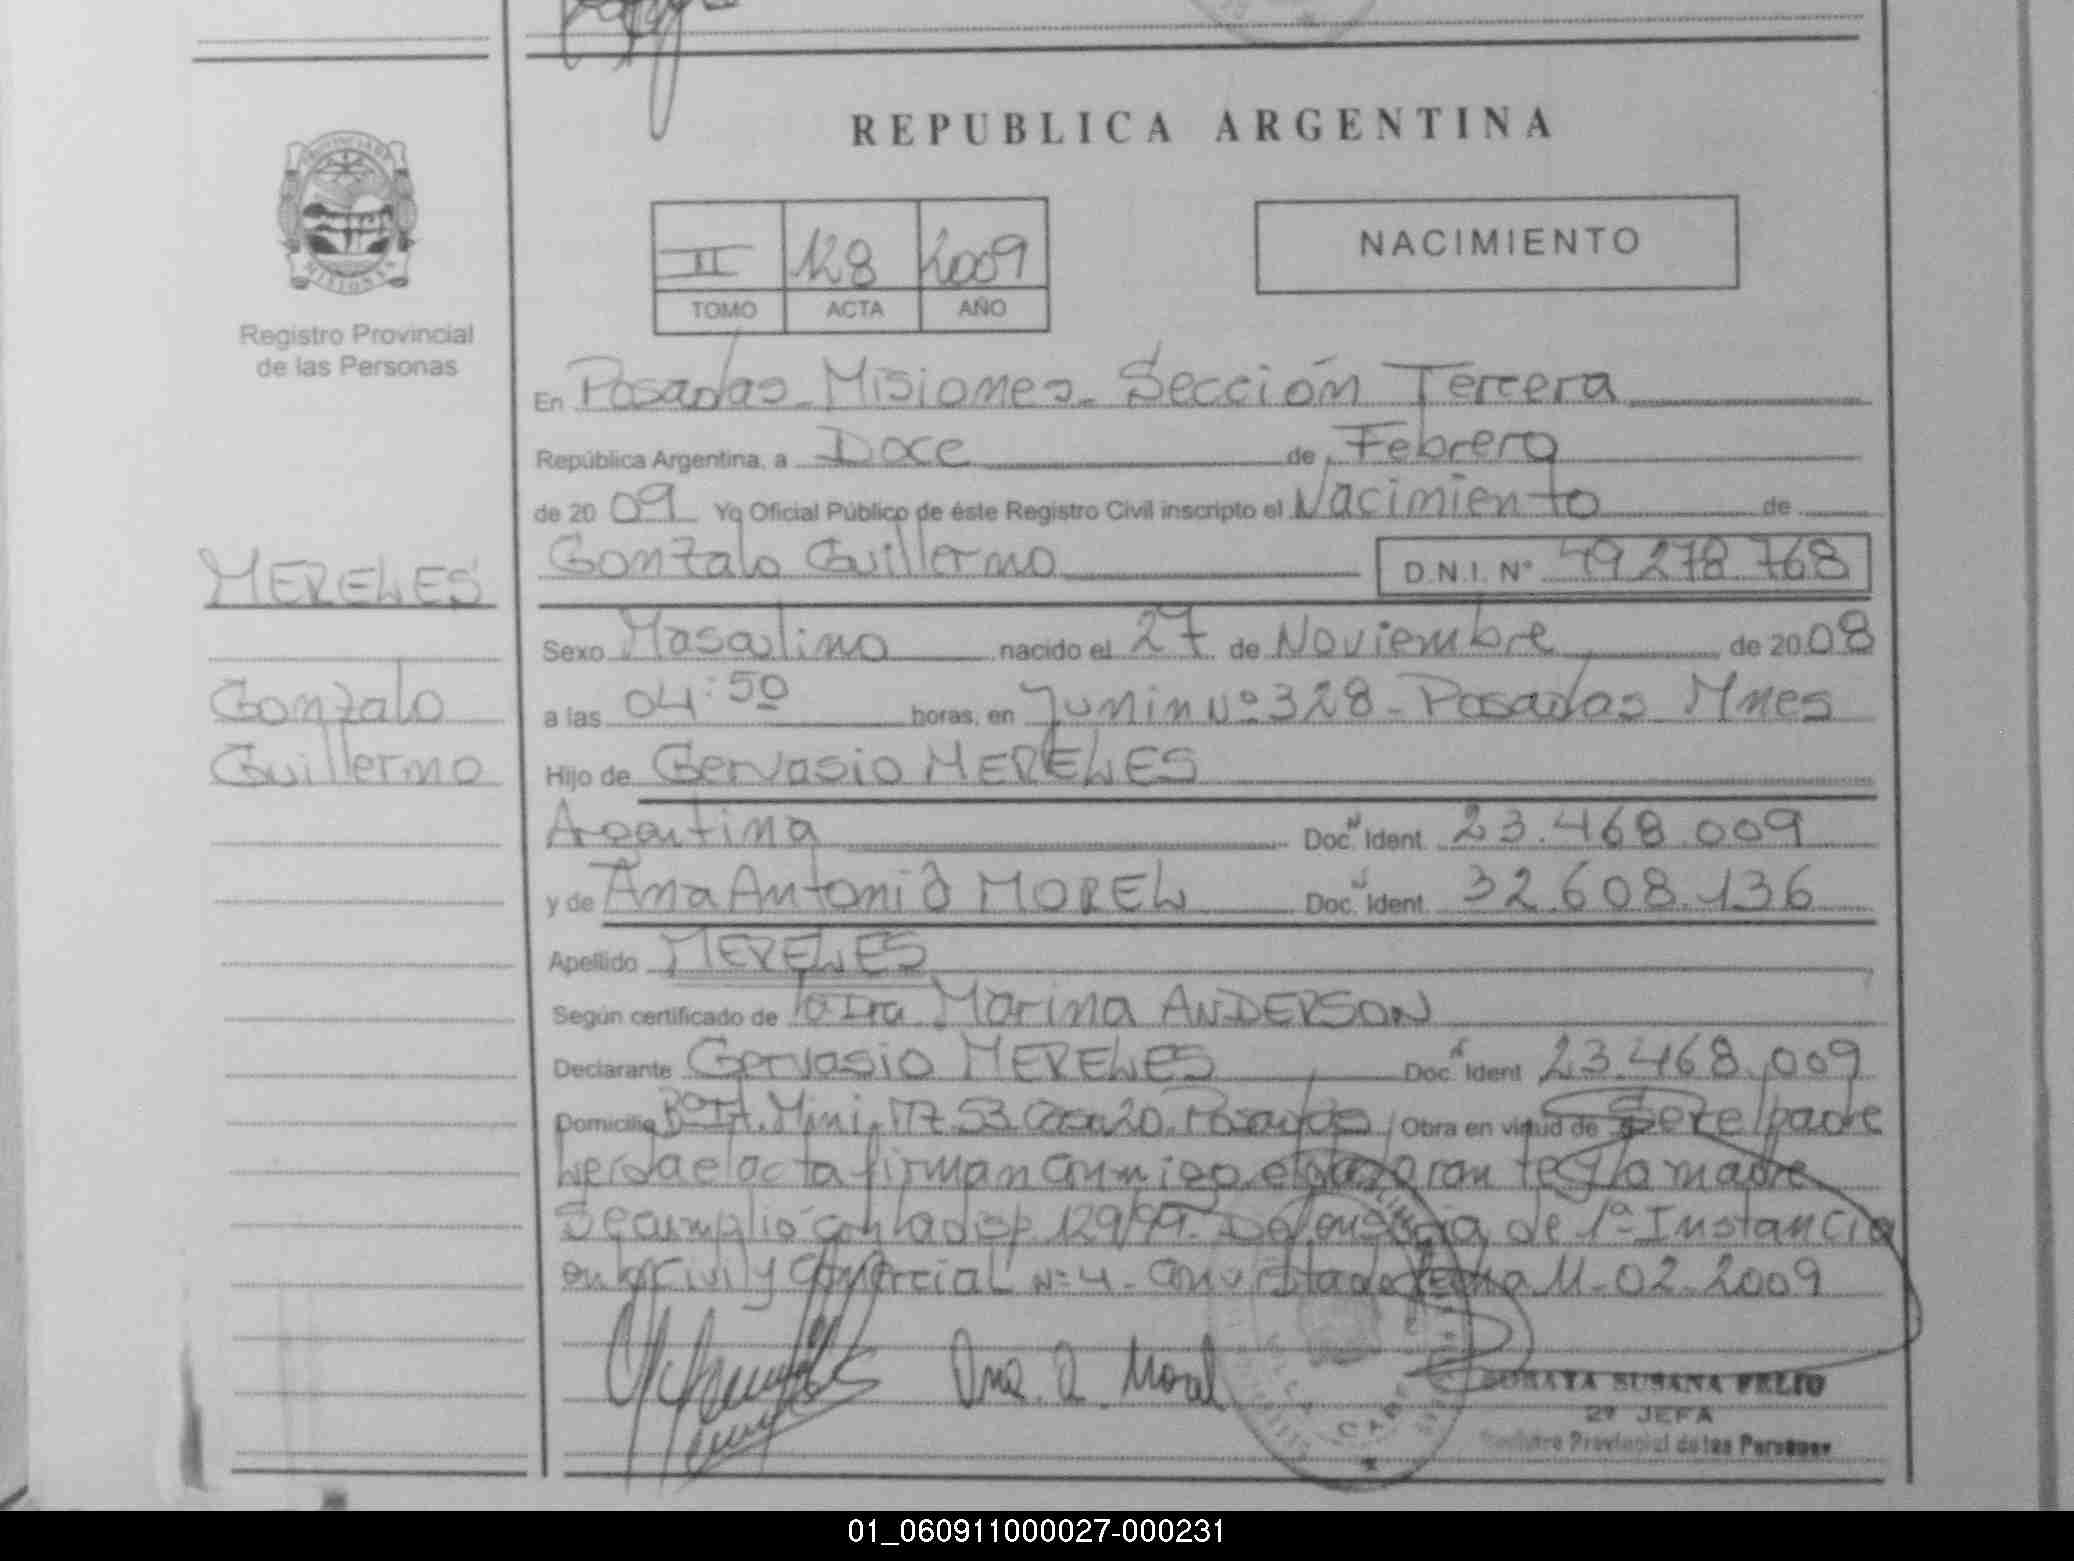 REPUBLICA ARGENTINA
PROVINCIA DE
MISIONES
Registro Provincial
de las Personas
II 128 2009
TOMO ACTA AÑO
NACIMIENTO
En Posadas - Misiones - Sección Tercera
República Argentina, a Doce de Febrero
de 2009 Yo Oficial Público de éste Registro Civil inscripto el Nacimiento de
MERELES
Gonzalo Guillermo D.N.I. Nº 49278768
Sexo Masculino nacido el 27 de Noviembre de 2008
Gonzalo
a las 04:50 horas, en Junin Nº 328 - Posadas Mnes
Guillermo
Hijo de Gervasio MERELES
Argentina Doc. Ident. 23.468.009
y de Ana Antonia MOREL Doc. Ident. 32.608.136
Apellido MERELES
Según certificado de la Dra Marina ANDERSON
Declarante Gervasio MERELES Doc. Ident 23.468.009
Domicilio Bº It. Mini Mz 53 Casa 20. Posadas Obra en virtud de Ser el padre
Leida el acta firman conmigo el y la madre
Se cumplió con la disp. 129/99. de 1ª Instancia
en lo Civil y Comercial Nº 4 - Con vista de fecha 11-02-2009
Ana. A. Morel
SORAYA SUSANA FELIO
2º JEFA
Registro Provincial de las Personas
01_060911000027-000231